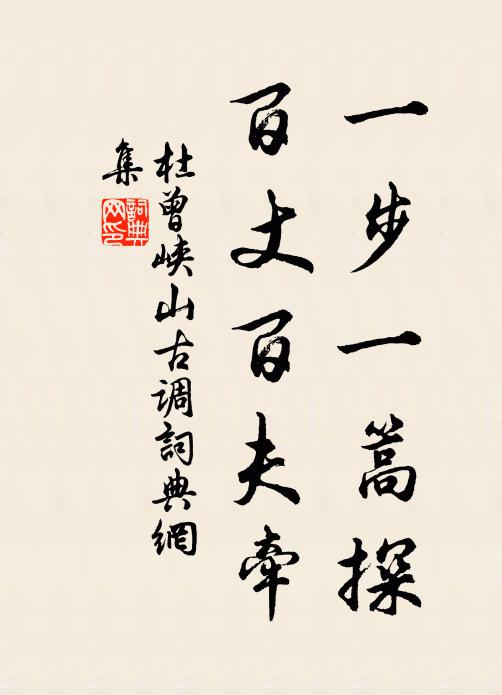 一步一篙探
百丈百夫牽
杜曾峡山古调詞典網
集
詞典
网印